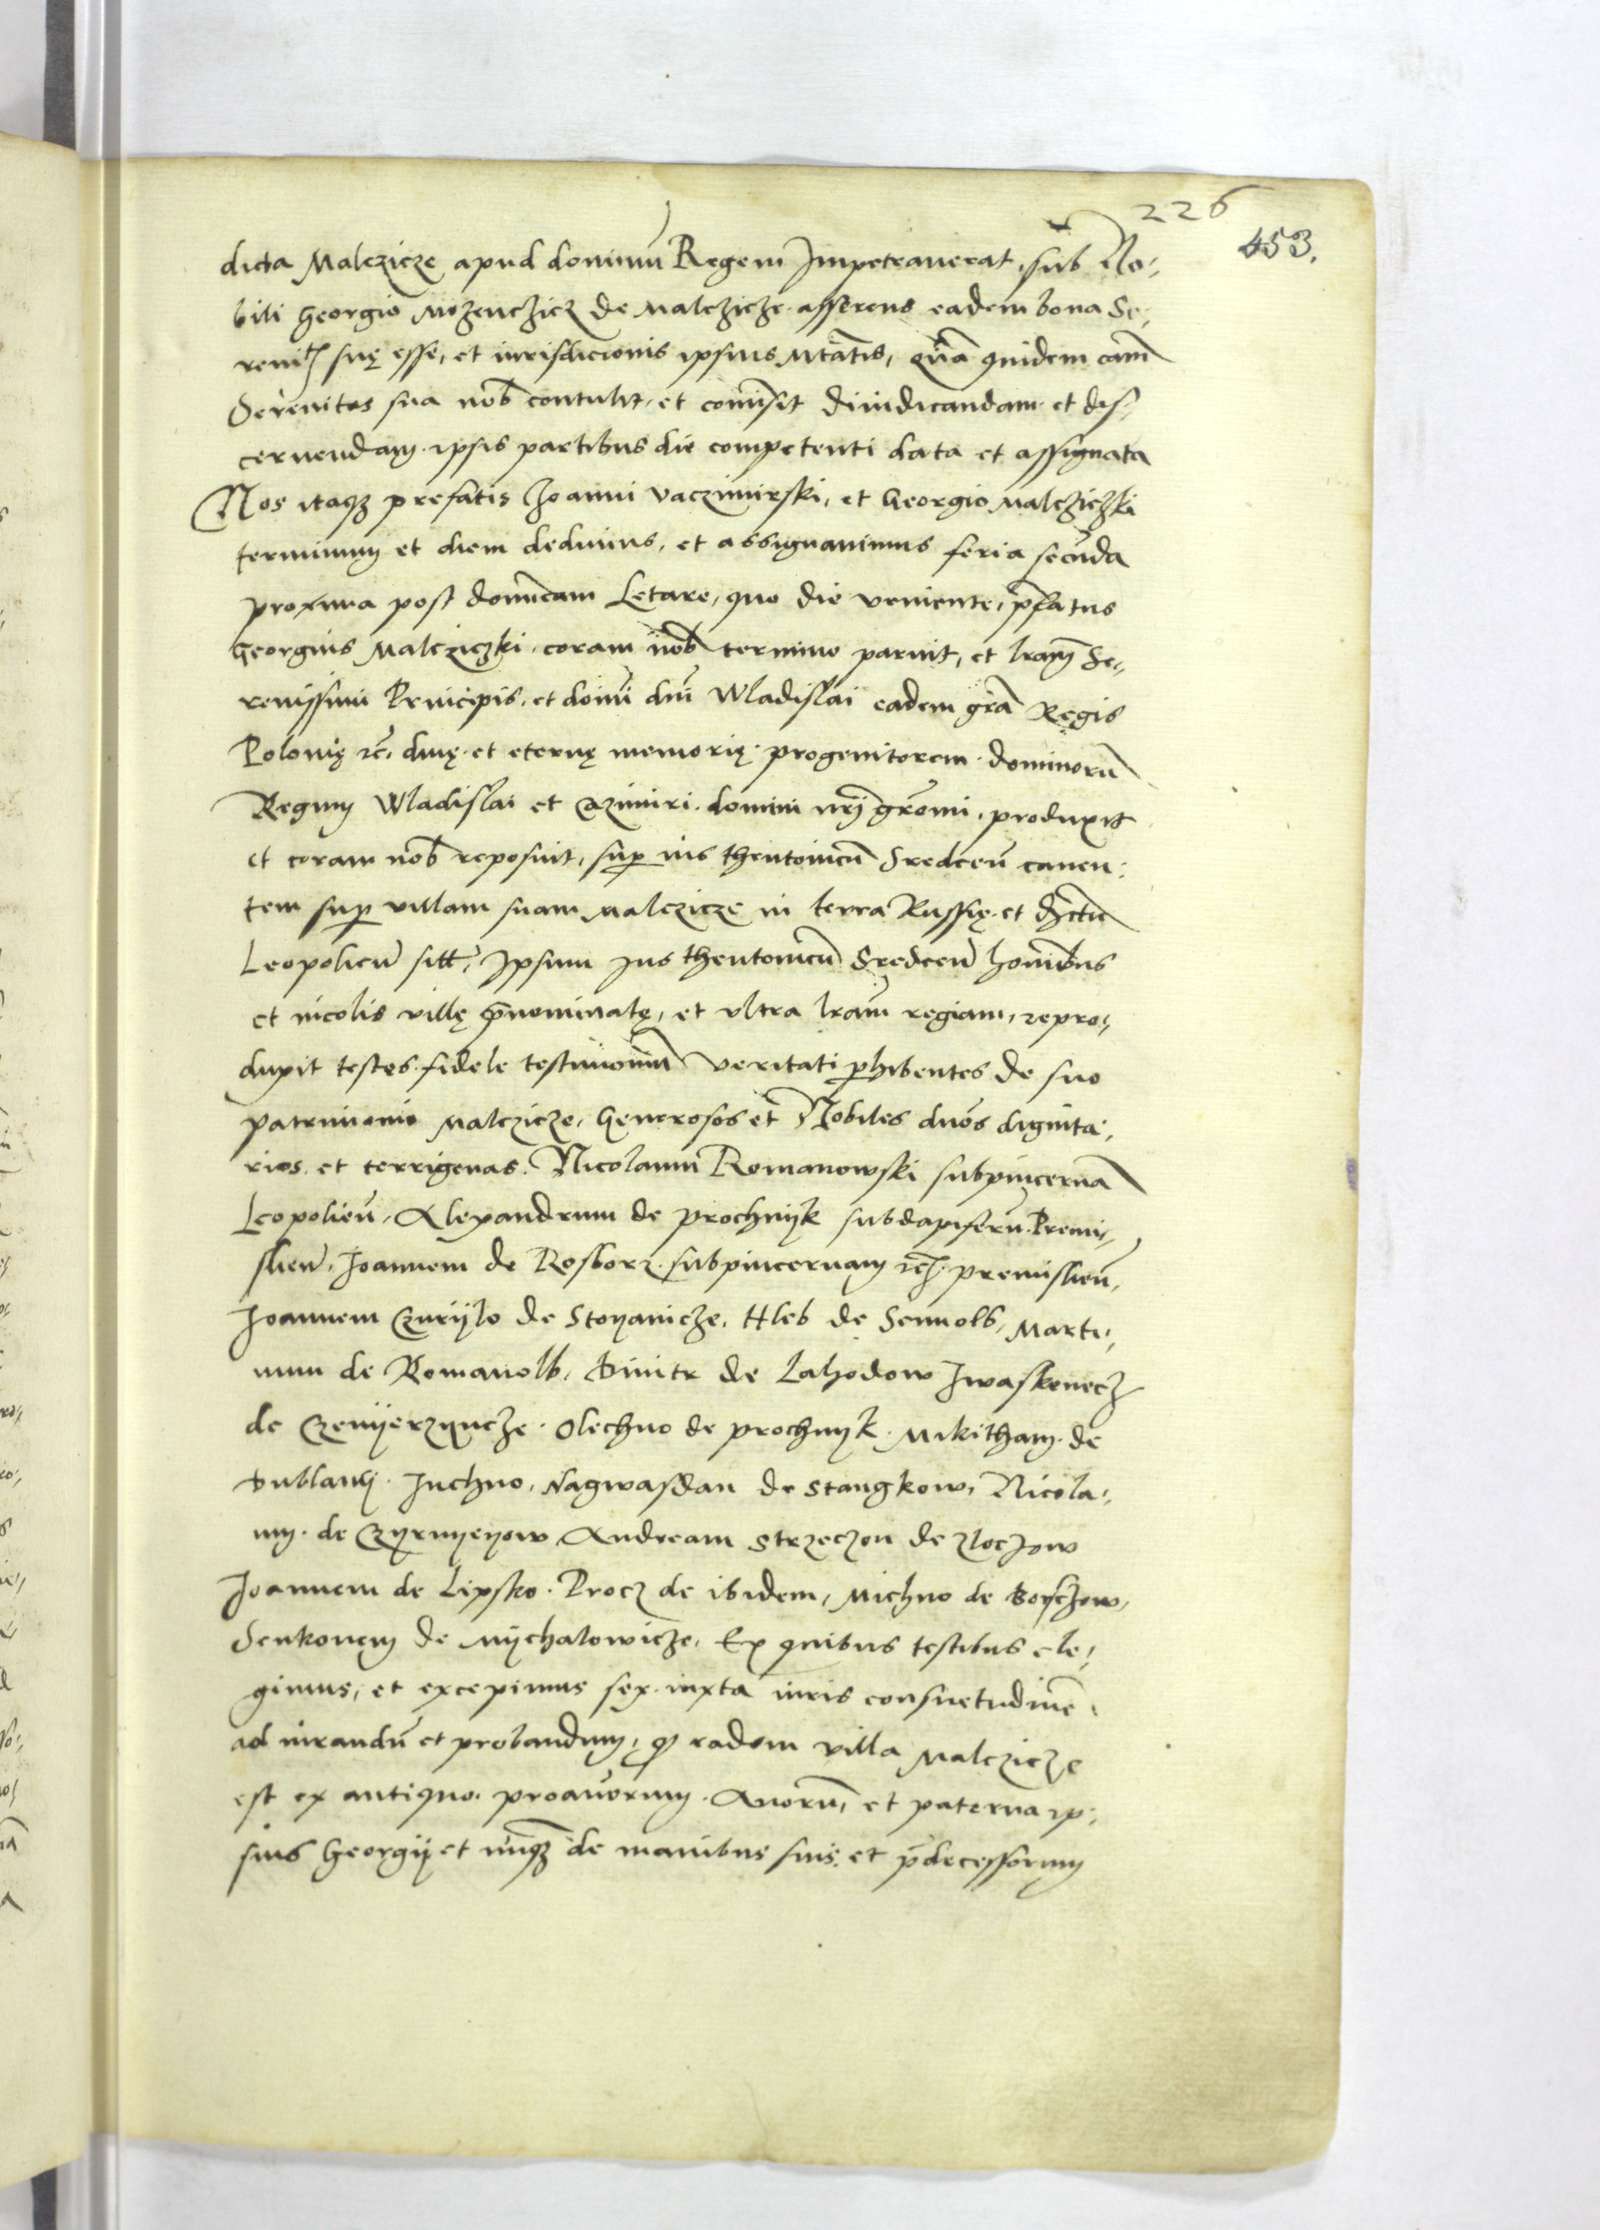 226
453.
dicta Malczicze apud dominũ Regem Impetrauerat, sub No:,
bili Georgio Mozenczicz de Malczicze. asserens eadem bona Se:,
renit[] suę esse, et iurisdicionis ipsius Mtãtis, quã quidem cam̃
Serenitas sua nob̃ contulit, et com̃isit diiudicandam. et dis,
cernendam. ipsis partibus die competenti data et assignata
Nos itaqȝ prefatis Joanni Vaczimirski, et Georgio Malcziczki
terminum et diem dedimus, et assignauimus feria secũda
proxima post domĩcam Letare, quo die veniente, p̃fatus
Georgius Malcziczki. coram nob̃ termino paruit, et lram̃ Se:,
renissimi Principis, et domĩ dnĩ Wladislai eadem grã Regis
Polonię zc̃, diuę. et eternę memorię. progenitorem. dominorũ
Regum Wladislai et Cazimiri. domini nr̃i grõmi, produxit
et coram nob̃ reposuit, sup̱ ius theutonicũ Sredceñ canen:
tem sup̱ villam suam Malczicze in terra Russię. et dr̃ctu
Leopolieñ sitt̃, Ipsum ius theutonicũ Sredceñ homĩbus
et incolis villę p̃nominatę, et vltra lram̃ regiam, repro:,
duxit testes. fidele testimoniũ veritati p̱hibentes de suo
patrimonio Malczicze, Generosos et Nobiles duos dignita:,
rios. et terrigenas. Nicolaum Romanowski subpincernã
Leopolieñ, Alexandrum de Prochnyk subdapiferũ. Premi:,
slieñ. Joannem de Rosborz. subpincernam zc̃. premislieñ,
Joannem Czurylo de Stoyanicze. Hleb de Semolb, Marti:,
num de Romanolb, Dimitr de Lahodow Iwaskonecz
de Czemyerzyncze. Olechno de prochnyk. Mikitham. de
Dublany. Juchno, Nagwasdan de Stangkow, Nicola:,
um. de Czyrmyeyow Andream Strzeczon de Zloczow
Joannem de Lipsko. Procz de ibidem, Michno de Boysczow,
Senkonem de Mychalowicze, Ex quibus testibus ele:,
gimus, et excepimus sex. iuxta iuris consuetudinẽ.
ad iurandũ et probandum, qȝ eadem villa Malczicze
est ex antiquo. proauorum. Auorum̃, et paterna ip:
sius Georgij et nũqȝ de manibus suis. et p̃decessorum